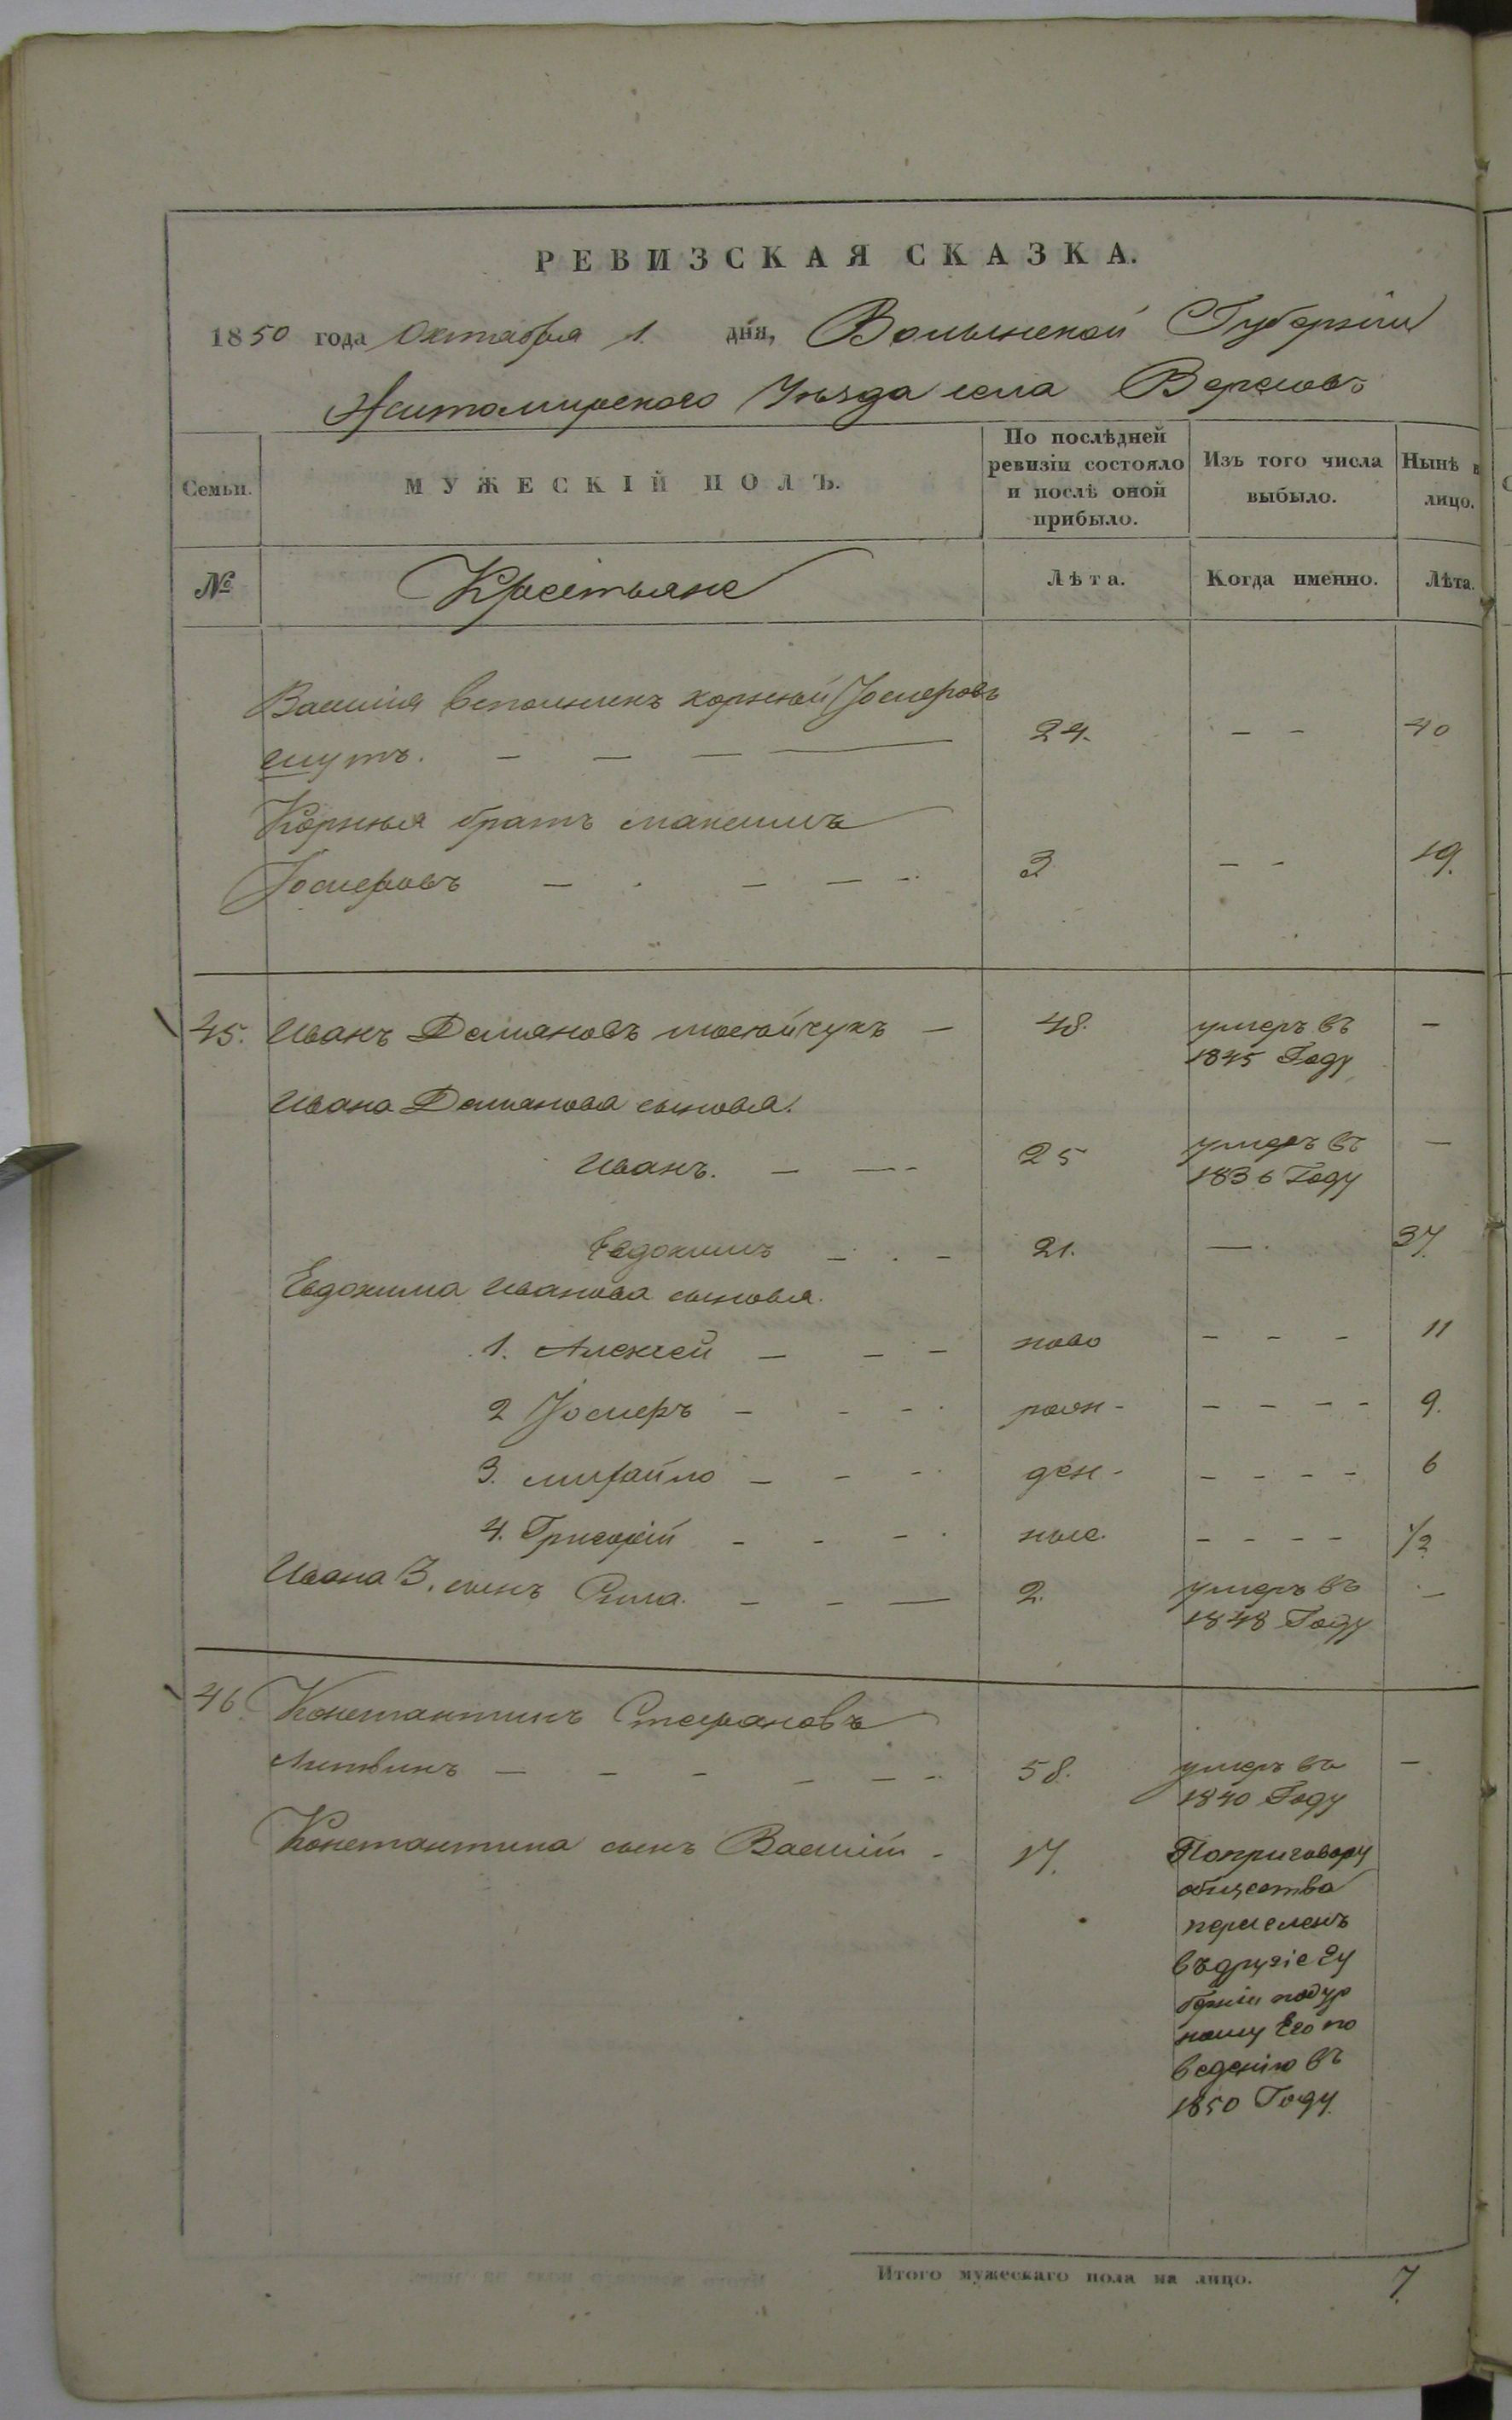 РЕВИЗСКАЯ СКАЗКА.
1850 года Октября 1. дня, Волынской Губернии
Житомирского Уѣзда села Вересовъ
Семьи. МУЖЕСКІЙ ПОЛЪ. По послѣдней ревизіи состояло и послѣ оной прибыло. Изъ того числа выбыло. Нынѣ в лицо.
№ Крестьяне Лѣта. Когда именно. Лѣта.
Василія вспомникъ корнѣй Іосиповъ
шутъ. — — — — 24. — — 40
Корнѣя братъ максимъ
Іосиповъ — . — — — 3 — — 19.
45. Иванъ Демяновъ мосейчукъ — 48. умеръ въ —
1845 Году
Ивана Демянова сыновья.
Иванъ. — — - 25 умеръ въ —
1836 Году
Евдокимъ — . — 21. — . 37.
Евдокима Иванова сыновья.
1. Алексей — — — ново — — — 11
2 Іосипъ — — - . рож- — — — — 9.
3. михайло — — - . ден- — — — — 6
4. Григорій — — - . ные. — — — — 1/2
Ивана 3. сынъ Сила. — — — 2. умеръ въ —
1848 Году
46 Константинъ Стефановъ
Литвинъ — — — — — — 58. умеръ въ —
1840 Году
Константина сынъ Василій - 17. По приговору
общества
переселенъ
въ другіе гу
берніи по дур
ному Его по
веденію въ
1850 Году.
Итого мужескаго пола на лицо. 7.